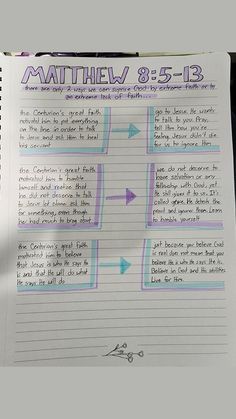 MATTHEW 8:5-13
there are only 2 ways we can surprise God: by extreme faith or by
an extreme lack of faith...
the Centurion's great faith
motivated him to put everything
on the line in order to talk
to Jesus and ask Him to heal
his servant
go to Jesus. He wants
to talk to you. Pray,
tell Him how you're
feeling. Jesus didn't die
for us to ignore Him
the Centurion's great faith
motivated him to humble
himself and realize that
he did not deserve to talk
to Jesus let alone ask Him
for something, even though
he had much to brag about
we do not deserve to
have salvation or any
fellowship with God, yet
He still gave it to us. It's
called grace. He detests the
proud and ignores them. Learn
to humble yourself
the Centurion's great faith
motivated him to believe
that Jesus is who He says He
is and that He will do what
He says He will do
just because you believe God
is real does not mean that you
believe He is who He says He is.
Believe in God and His abilities.
Live for Him.